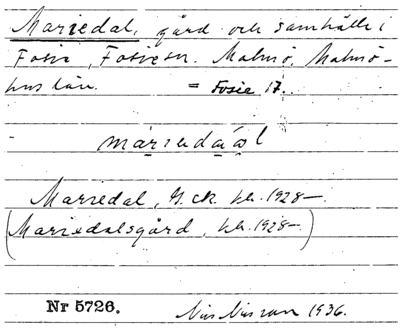 Mariedal, gård och samhälle i
Fosie, Fosie sn. Malmö, Malmö-
hus län. = Fosie 17.
Mariedal, G. ck. bl. 1928–
(Mariedalsgård, bl. 1928–)
Nr 5726. Nils Nilsson 1936.